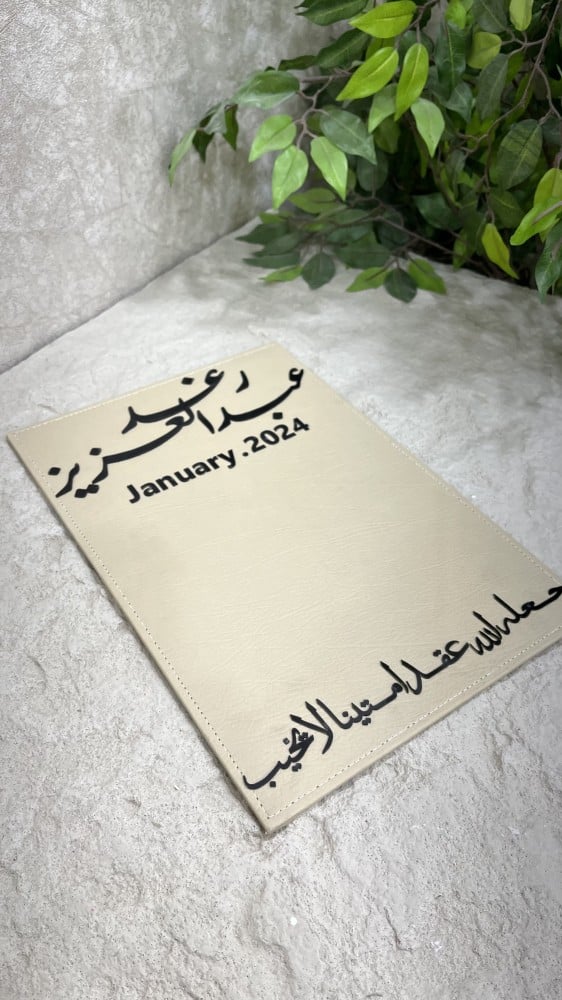 رغد
عبدالعزيز
January.2024
جعله الله عقدا متينا لا يخيب